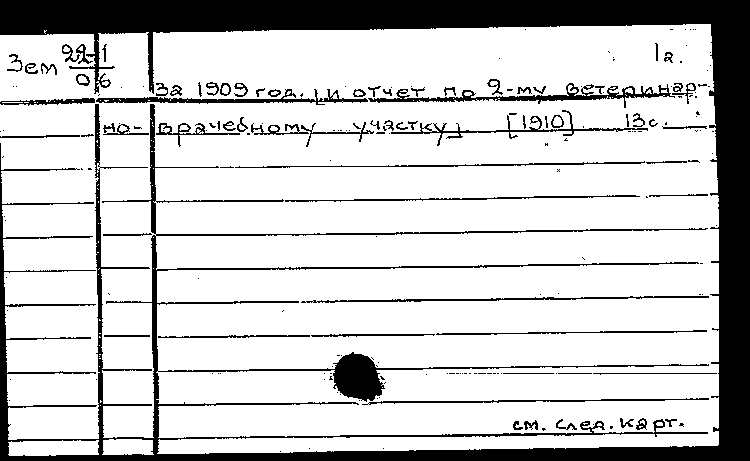 1а.
Зем 22-1
06
За 1909 год. [и отчет по 2-му ветеринар-
но-врачебному участку] [1910] 13с.
см. след. карт.